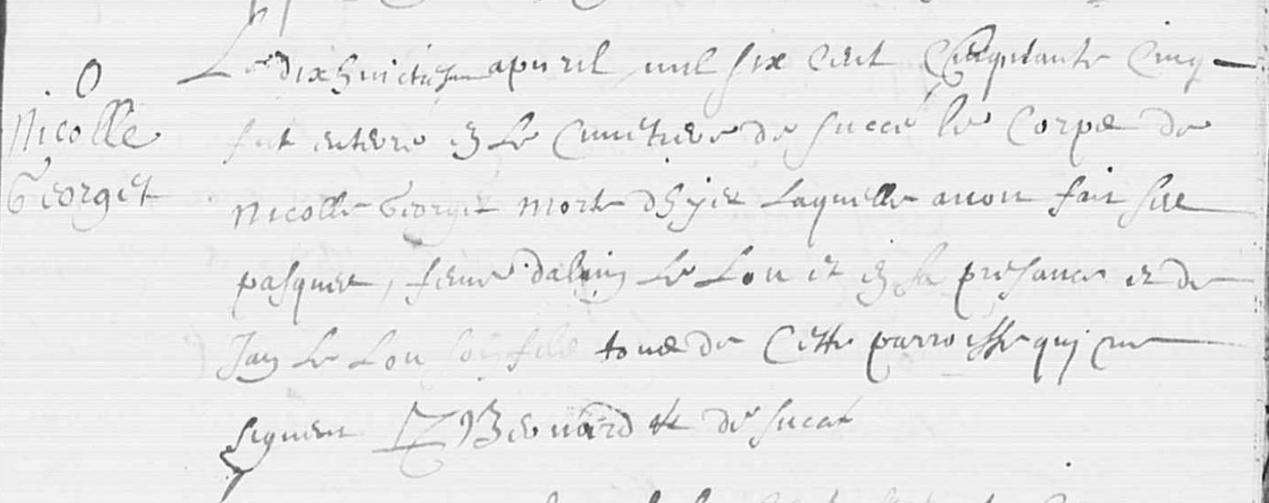 O
Nicolle
Georget
Le dixhuictiesme apuril mil six cent Cinquante Cinq
fut enterre en Le Cimetiere de succé le Corps de
Nicolle Georget morte d'hyer Laquelle auoit fait ses
pasques, feme d'alain Le Lou et en sa presance et de
Jan Le Lou son fils tous de Cette parroisse qui ne
signent de sucé